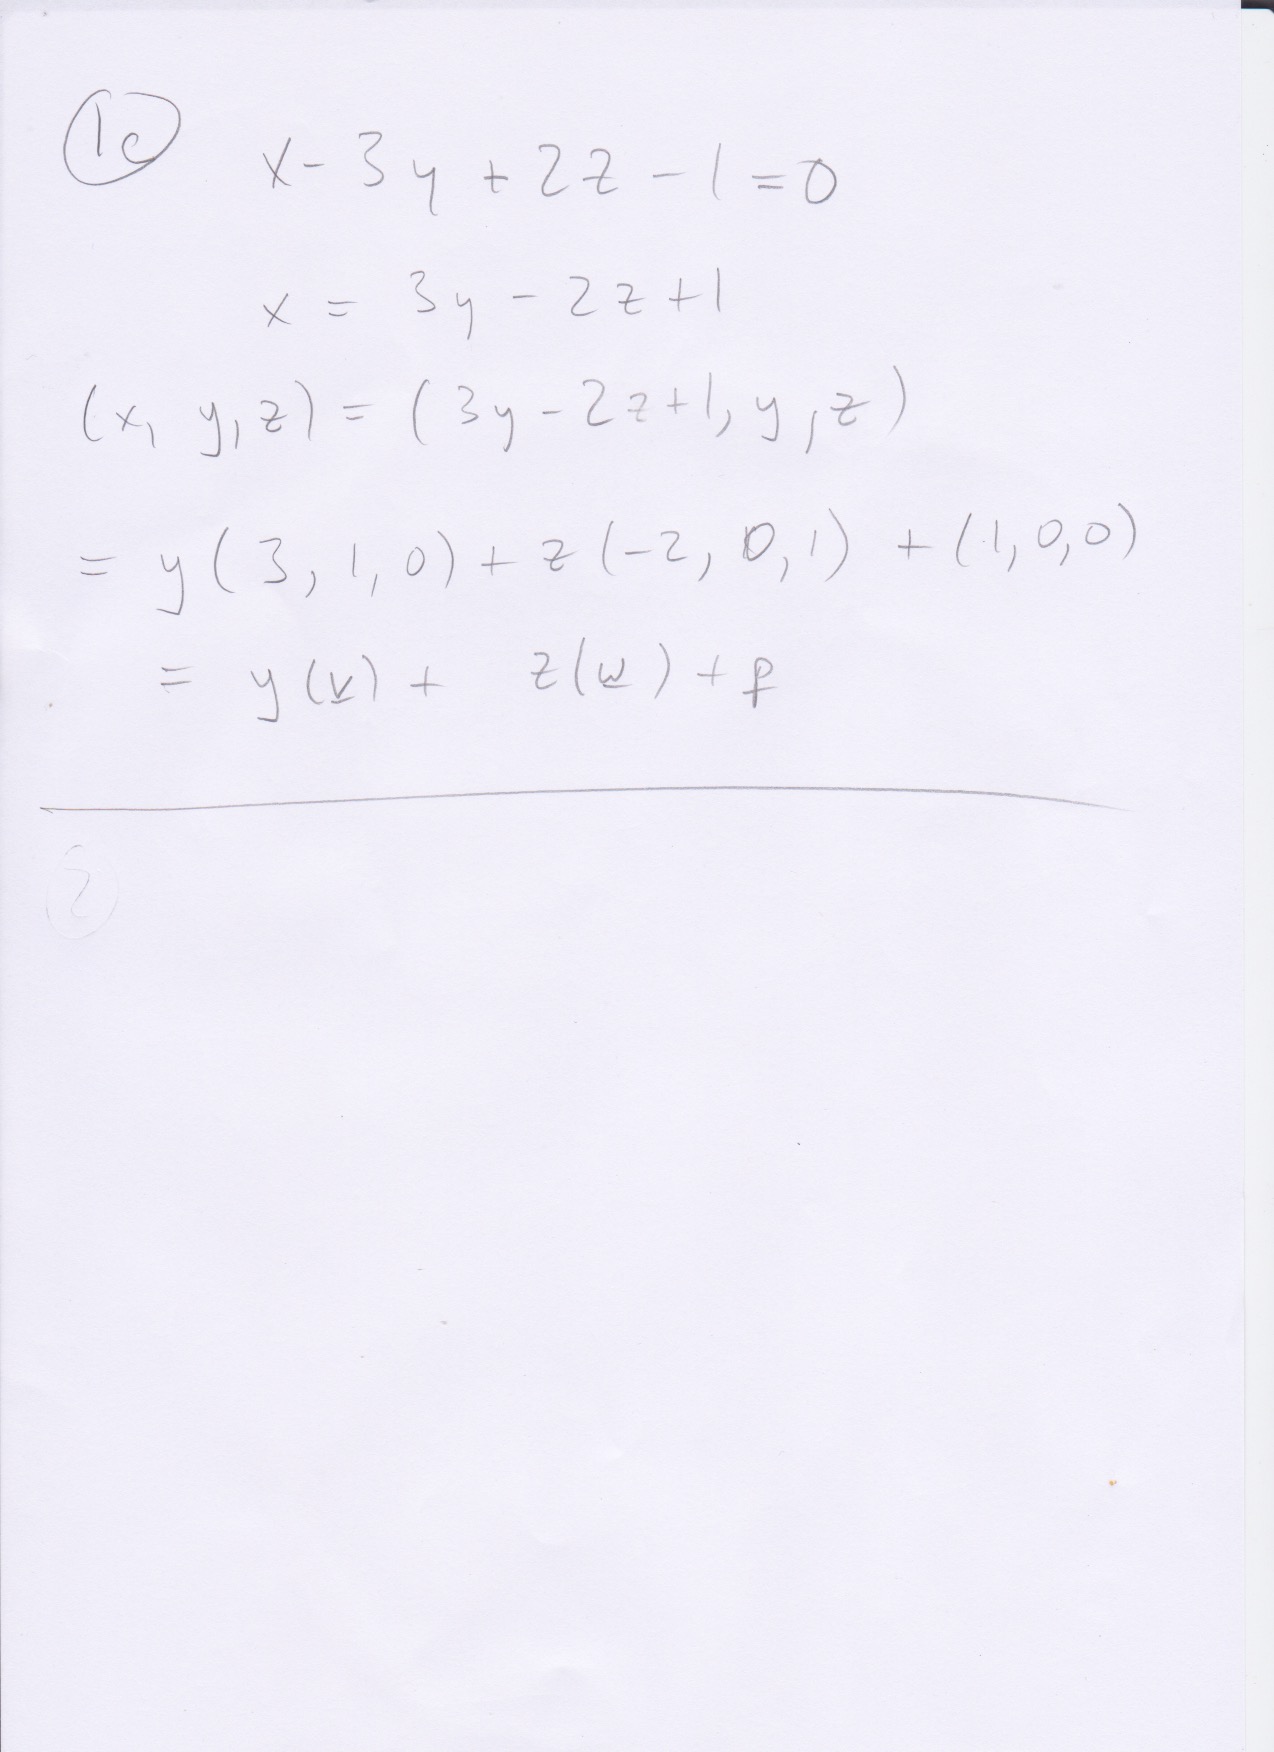 1c
x - 3y + 2z - 1 = 0
x = 3y - 2z + 1
(x, y, z) = (3y - 2z + 1, y, z)
= y(3, 1, 0) + z(-2, 0, 1) + (1, 0, 0)
= y(v) + z(w) + p
2